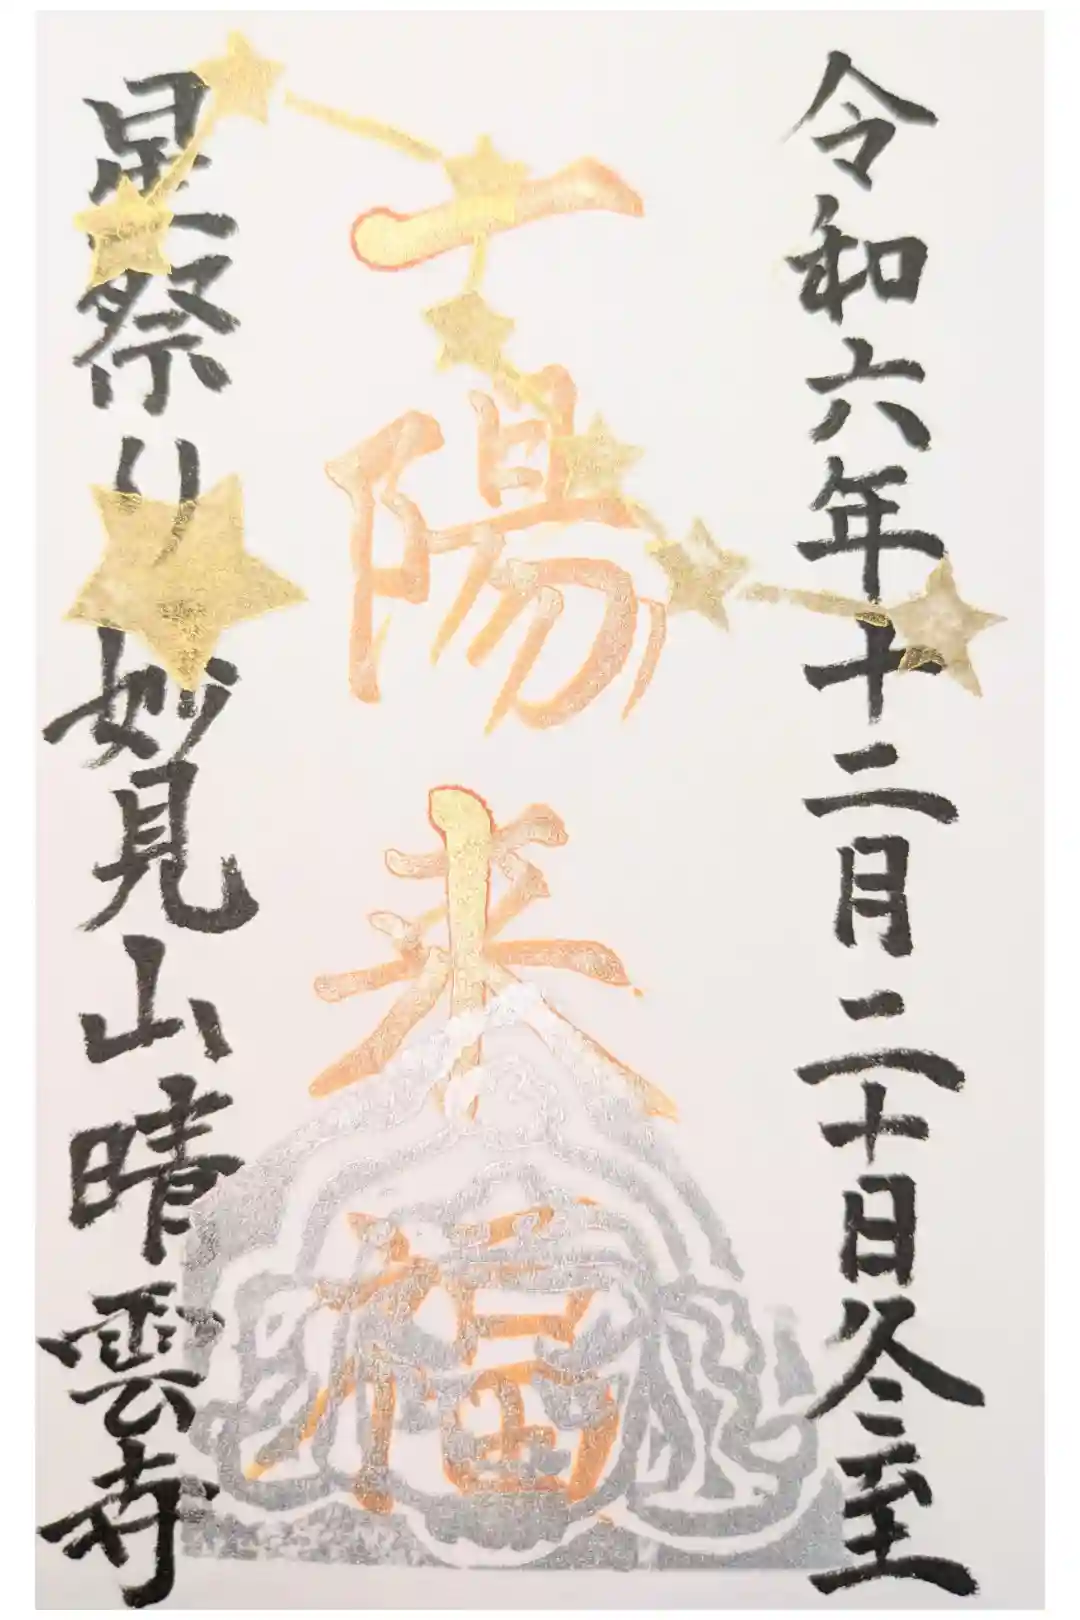 令和六年十二月二十日冬至
一陽来福
星祭り 妙見山晴雲寺